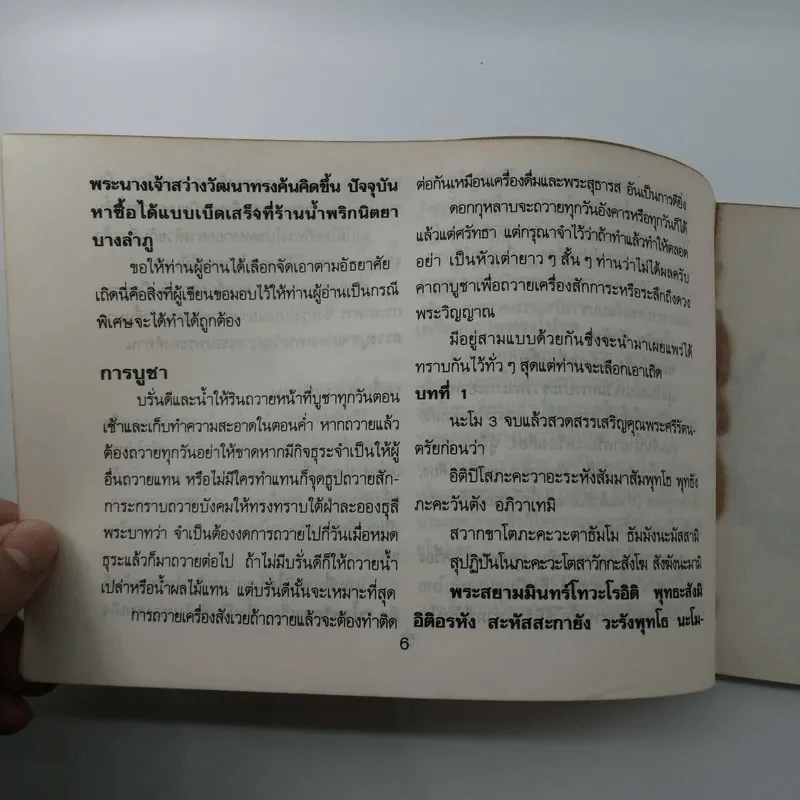 พระนางเจ้าสว่างวัฒนาทรงค้นคิดขึ้น ปัจจุบัน
หาซื้อได้แบบเบ็ดเสร็จที่ร้านน้ำพริกนิตยา
บางลำภู
ขอให้ท่านผู้อ่านได้เลือกจัดเอาตามอัธยาศัย
เถิดนี่คือสิ่งที่ผู้เขียนขอมอบไว้ให้ท่านผู้อ่านเป็นกรณี
พิเศษจะได้ทำได้ถูกต้อง
การบูชา
บรั่นดีและน้ำให้รินถวายหน้าที่บูชาทุกวันตอน
เช้าและเก็บทำความสะอาดในตอนค่ำ หากถวายแล้ว
ต้องถวายทุกวันอย่าให้ขาดหากมีกิจธุระจำเป็นให้ผู้
อื่นถวายแทน หรือไม่มีใครทำแทนก็จุดธูปถวายสัก-
การะกราบถวายบังคมให้ทรงทราบใต้ฝ่าละอองธุลี
พระบาทว่า จำเป็นต้องงดการถวายไปกี่วันเมื่อหมด
ธุระแล้วก็มาถวายต่อไป ถ้าไม่มีบรั่นดีก็ให้ถวายน้ำ
เปล่าหรือน้ำผลไม้แทน แต่บรั่นดีนั้นจะเหมาะที่สุด
การถวายเครื่องสังเวยถ้าถวายแล้วจะต้องทำติด
ต่อกันเหมือนเครื่องดื่มและพระสุธารส อันเป็นการดียิ่ง
ดอกกุหลาบจะถวายทุกวันอังคารหรือทุกวันก็ได้
แล้วแต่ศรัทธา แต่กรุณาจำไว้ว่าถ้าทำแล้วทำให้ตลอด
อย่า เป็นหัวเต่ายาว ๆ สั้น ๆ ท่านว่าไม่ได้ผลครับ
คาถาบูชาเพื่อถวายเครื่องสักการะหรือระลึกถึงดวง
พระวิญญาณ
มีอยู่สามแบบด้วยกันซึ่งจะนำมาเผยแพร่ให้
ทราบกันไว้ทั่ว ๆ สุดแต่ท่านจะเลือกเอาเถิด
บทที่ 1
นะโม 3 จบแล้วสวดสรรเสริญคุณพระศรีรัตน-
ตรัยก่อนว่า
อิติปิโสภะคะวาอะระหังสัมมาสัมพุทโธ พุทธัง
ภะคะวันตัง อภิวาเทมิ
สวากขาโตภะคะวะตาธัมโม ธัมมังนะมัสสามิ
สุปฏิปันโนภะคะวะโตสาวักกะสังโฆ สังฆังนะมามิ
พระสยามมินทร์โทวะโรอิติ พุทธะสังมิ
อิติอรหัง สะหัสสะกายัง วะรังพุทโธ นะโม-
6